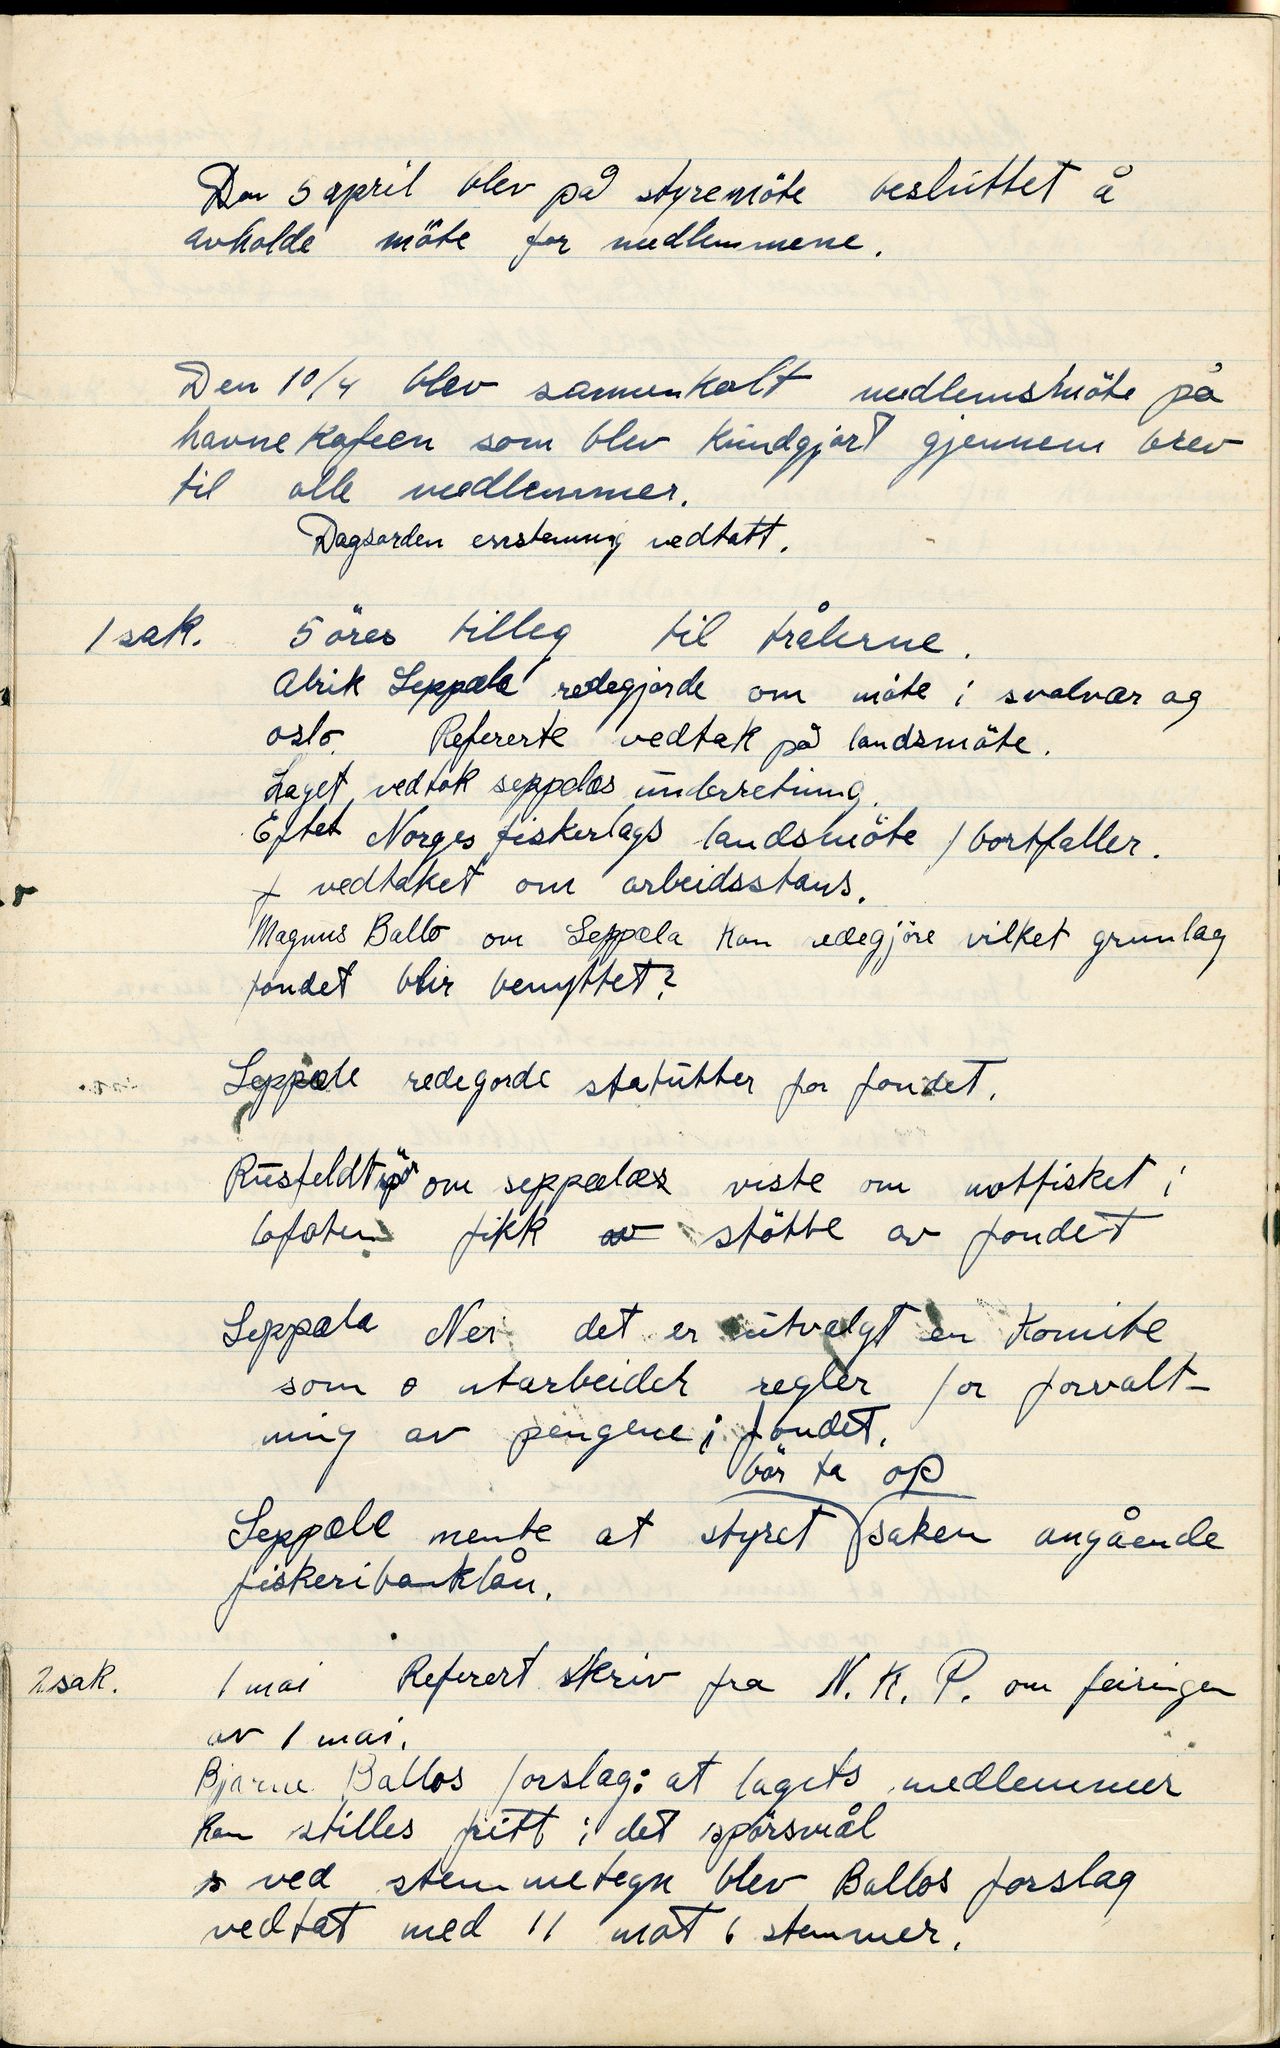 Den 5 april blev på styremöte besluttet å
avholde möte for medlemmene.
Den 10/4 blev sammenkalt medlemsmöte på
havnekafeen som blev kundgjort gjennem brev
til alle medlemmer.
Dagsorden enstemmig vedtatt.
1 sak. 5 öres tilleg til trålerne.
Alrik Seppola redegjorde om möte i svolvær og
oslo. Refererte vedtak på landsmöte.
Laget vedtok seppolas underretning.
Eftet Norges fiskerlags landsmöte bortfaller.
vedtaket om arbeidsstans.
Magnus Ballo om Seppola kan redegjöre vilket grunlag
fondet blir benyttet?
Seppola redegorde statutter for fondet.
Rusfeldt spör om seppolas viste om notfisket i
lofoten fikk av støtte av fondet
Seppola Nei det er utvalgt en Komite
som o utarbeider regler for forvalt-
ning av pengene i fondet.
bör ta op
Seppola mente at styret saken angående
fiskeribanklån.
2 sak. 1 mai Referert skriv fra N. K. P. om feiringen
av 1 mai.
Bjarne Ballos forslag: at lagets medlemmer
kan stilles fritt i det spörsmål
ved stemmetegn blev Ballos forslag
vedtat med 11 mot 6 stemmer.